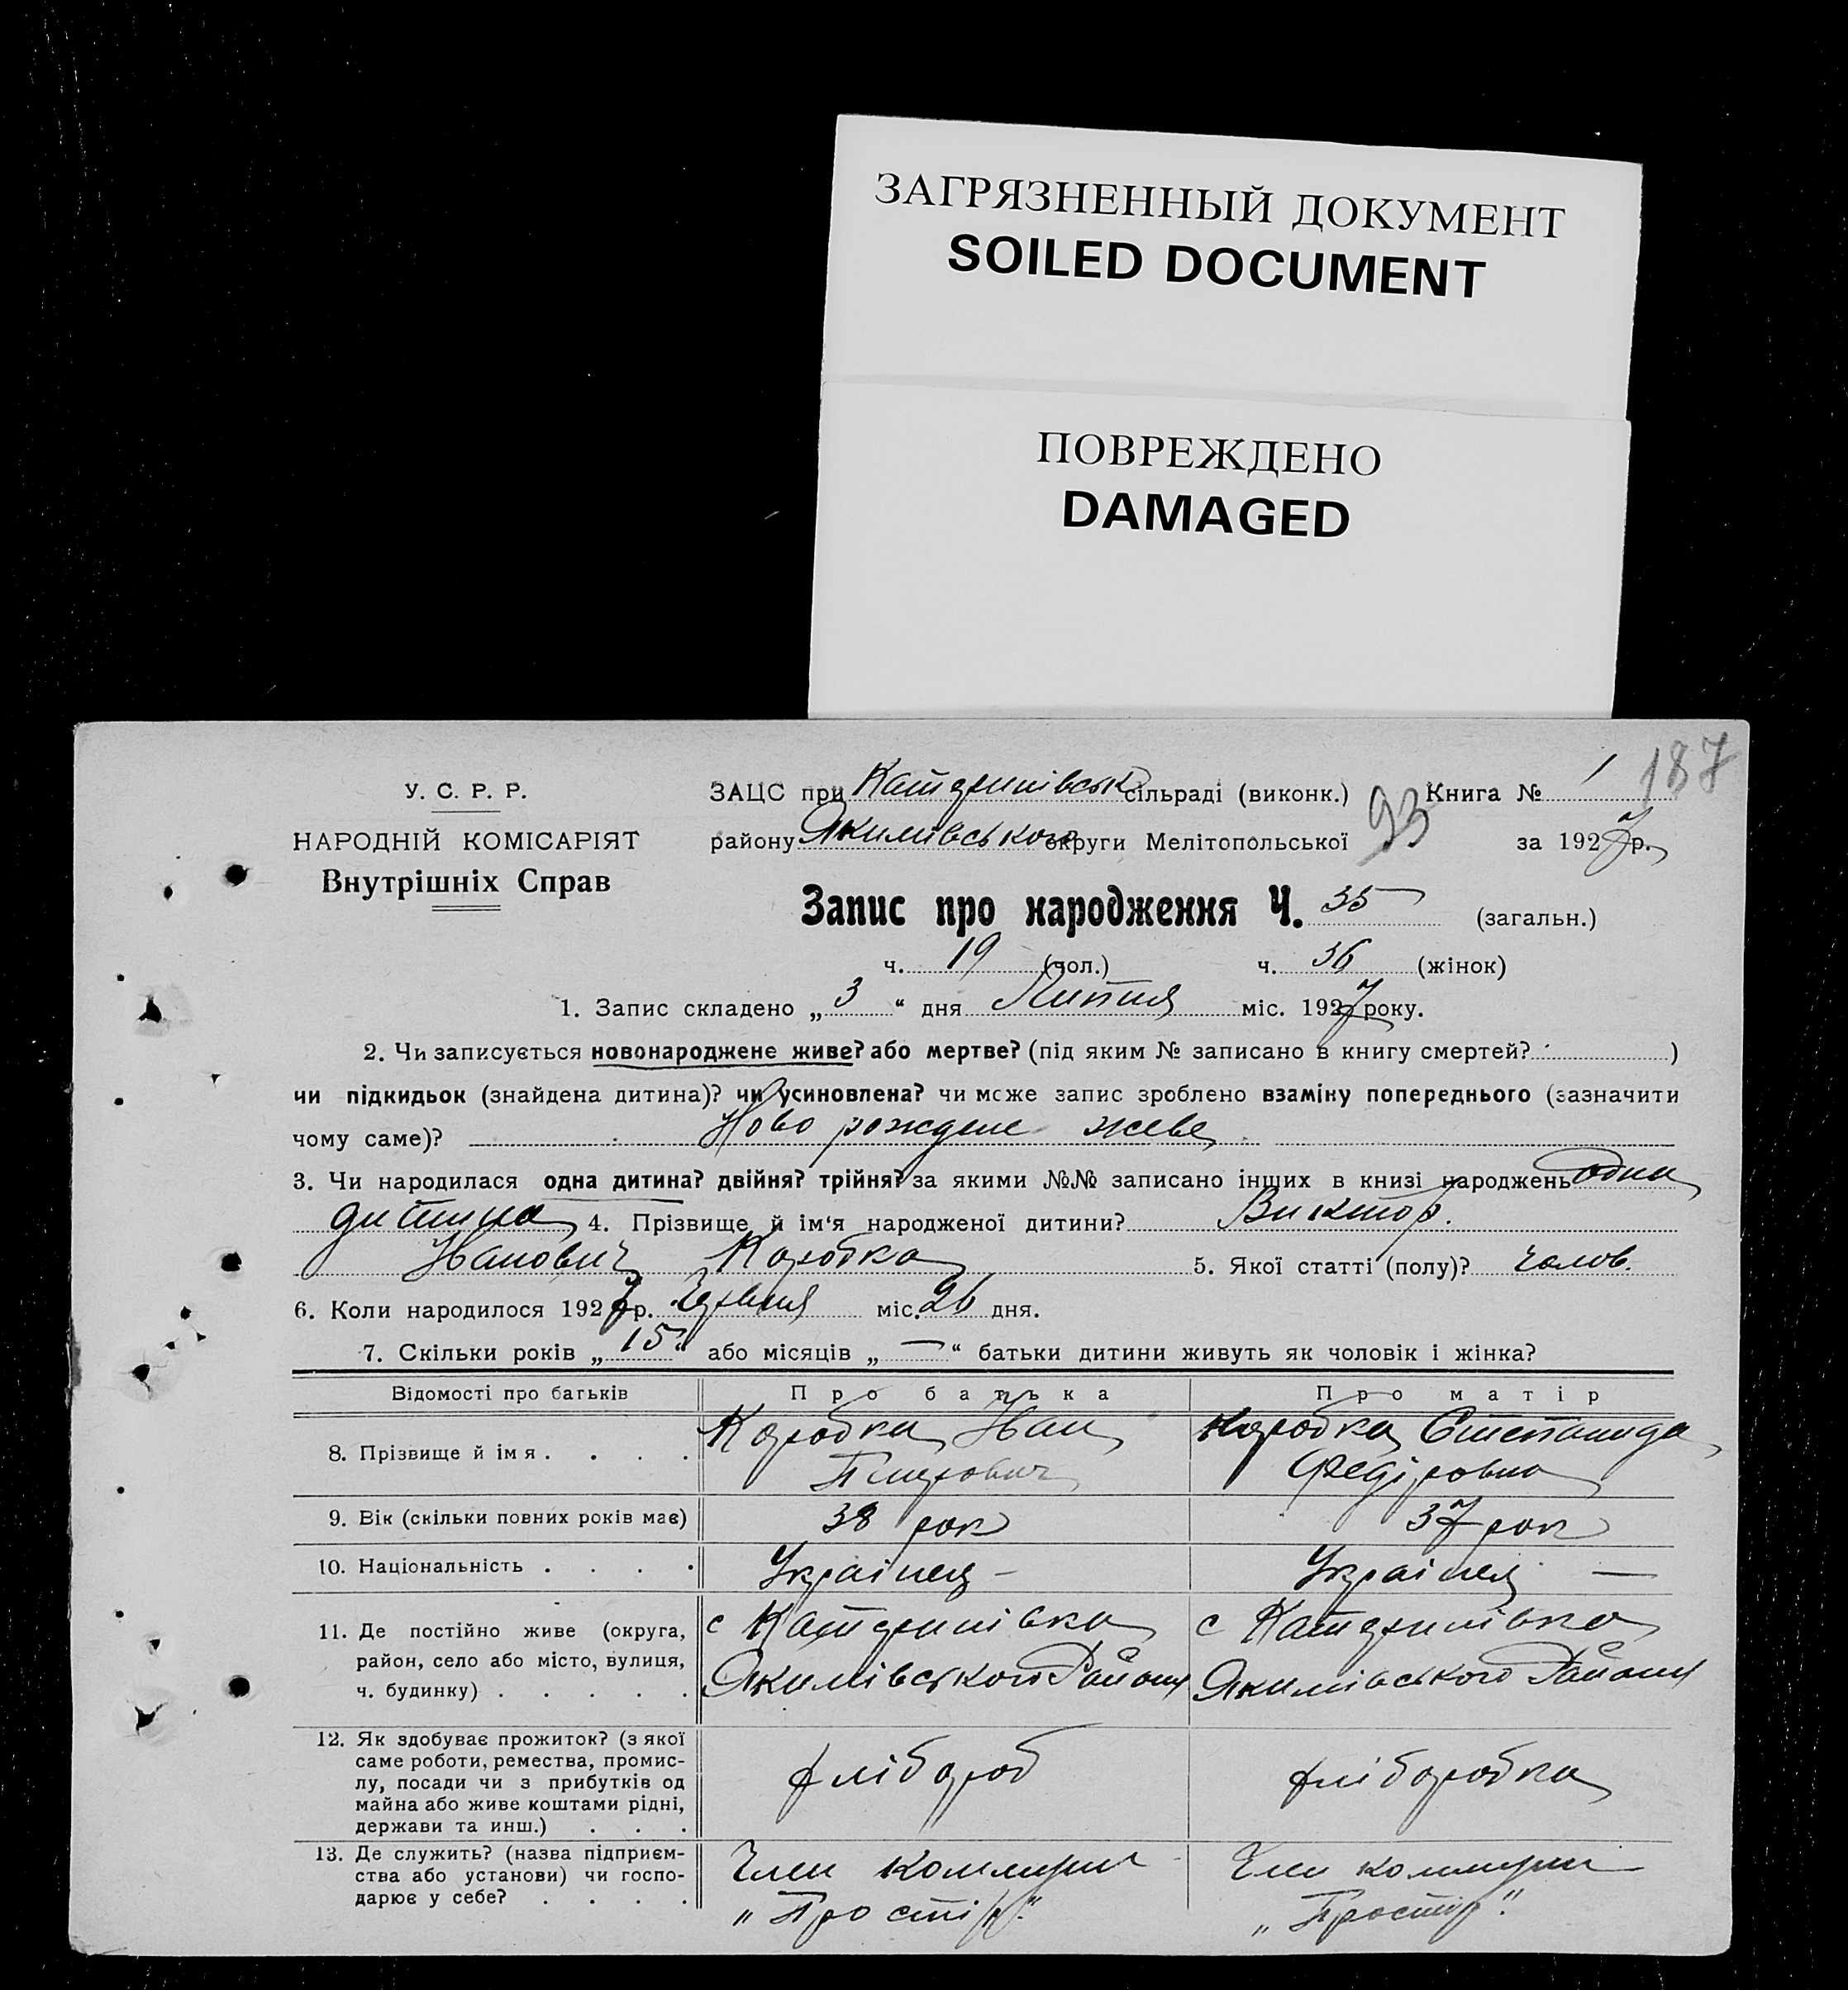 ЗАГРЯЗНЕННЫЙ ДОКУМЕНТ
SOILED DOCUMENT
ПОВРЕЖДЕНО
DAMAGED
187
У. С. Р. Р.
НАРОДНІЙ КОМІСАРІЯТ
Внутрішніх Справ
ЗАЦС при Катеринівськ сільраді (виконк.) Книга № 1
93
району Якимівського округи Мелітопольської за 1927 р.
Запис про народження Ч. 35 (загальн.)
ч. 19 (чол.) ч. 36 (жінок)
1. Запис складено „ 3 “ дня Липня міс. 1927 року.
2. Чи записується новонароджене живе? або мертве? (під яким № записано в книгу смертей? )
чи підкидьок (знайдена дитина)? чи усиновлена? чи може запис зроблено взаміну попереднього (зазначити
чому саме)? Ново рождене живе
3. Чи народилася одна дитина? двійня? трійня? за якими №№ записано інших в книзі народжень одна
дитина 4. Прізвище й ім‘я народженої дитини? Виктор
Іванович Коробка 5. Якої статті (полу)? чолов.
6. Коли народилося 1927 р. Червня міс. 26 дня.
7. Скільки років „ 15 “ або місяців „ — “ батьки дитини живуть як чоловік і жінка?
Відомості про батьків Про батька Про матір
8. Прізвище й ім я . . . . Коробка Іван Коробка Степанида
Петрович Федіровна
9. Вік (скільки повних років має) 38 рок 37 рок
10. Національність . . . . Українец – Українец —
11. Де постійно живе (округа, с Катеринівка с Катеринівка
район, село або місто, вулиця, Якимівського Району Якимівського Району
ч. будинку) . . . . .
12. Як здобуває прожиток? (з якої
саме роботи, ремества, промис-
лу, посади чи з прибутків од хлібороб хліборобка
майна або живе коштами рідні,
держави та инш.) . . .
13. Де служить? (назва підприєм- Член коммуни Член коммуни
ства або установи) чи госпо- „Простір“. „Простір“.
дарює у себе? . . . .